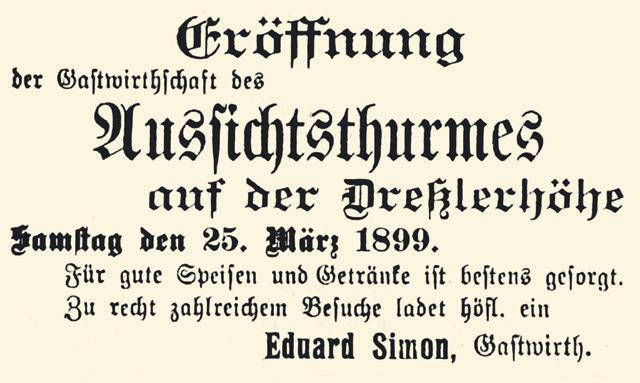 Eröffnung
der Gastwirthschaft des
Aussichtsthurmes
auf der Dreßlerhöhe
Samstag den 25. März 1899.
Für gute Speisen und Getränke ist bestens gesorgt.
Zu recht zahlreichem Besuche ladet höfl. ein
Eduard Simon, Gastwirth.